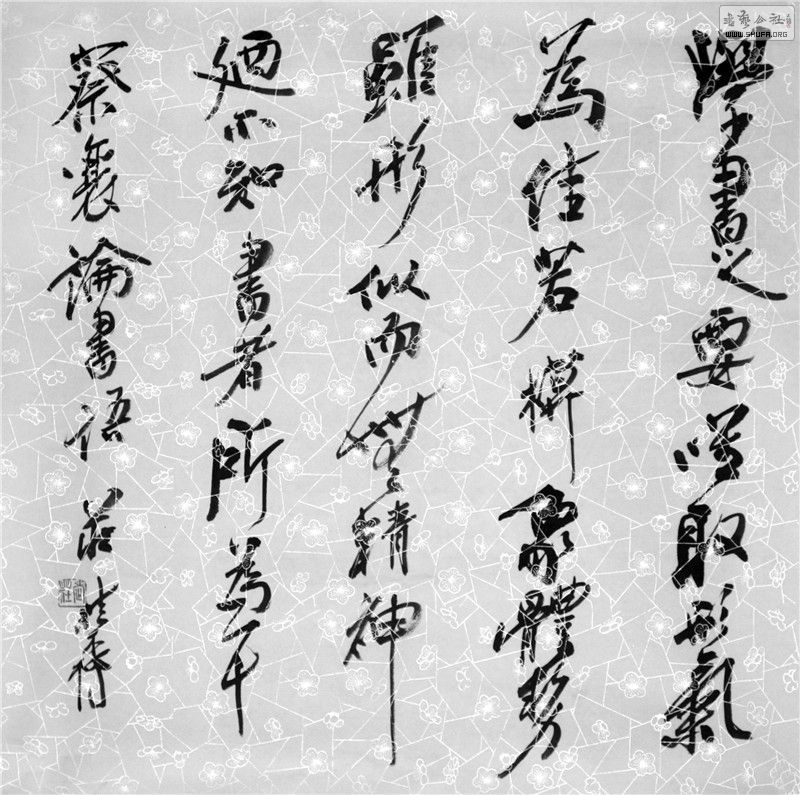 學書之要唯取形氣
為佳若模象體勢
雖形似而無精神
廼不知書者所為耳
蔡襄論書語 莊
书艺公社
WWW.SHUFA.ORG